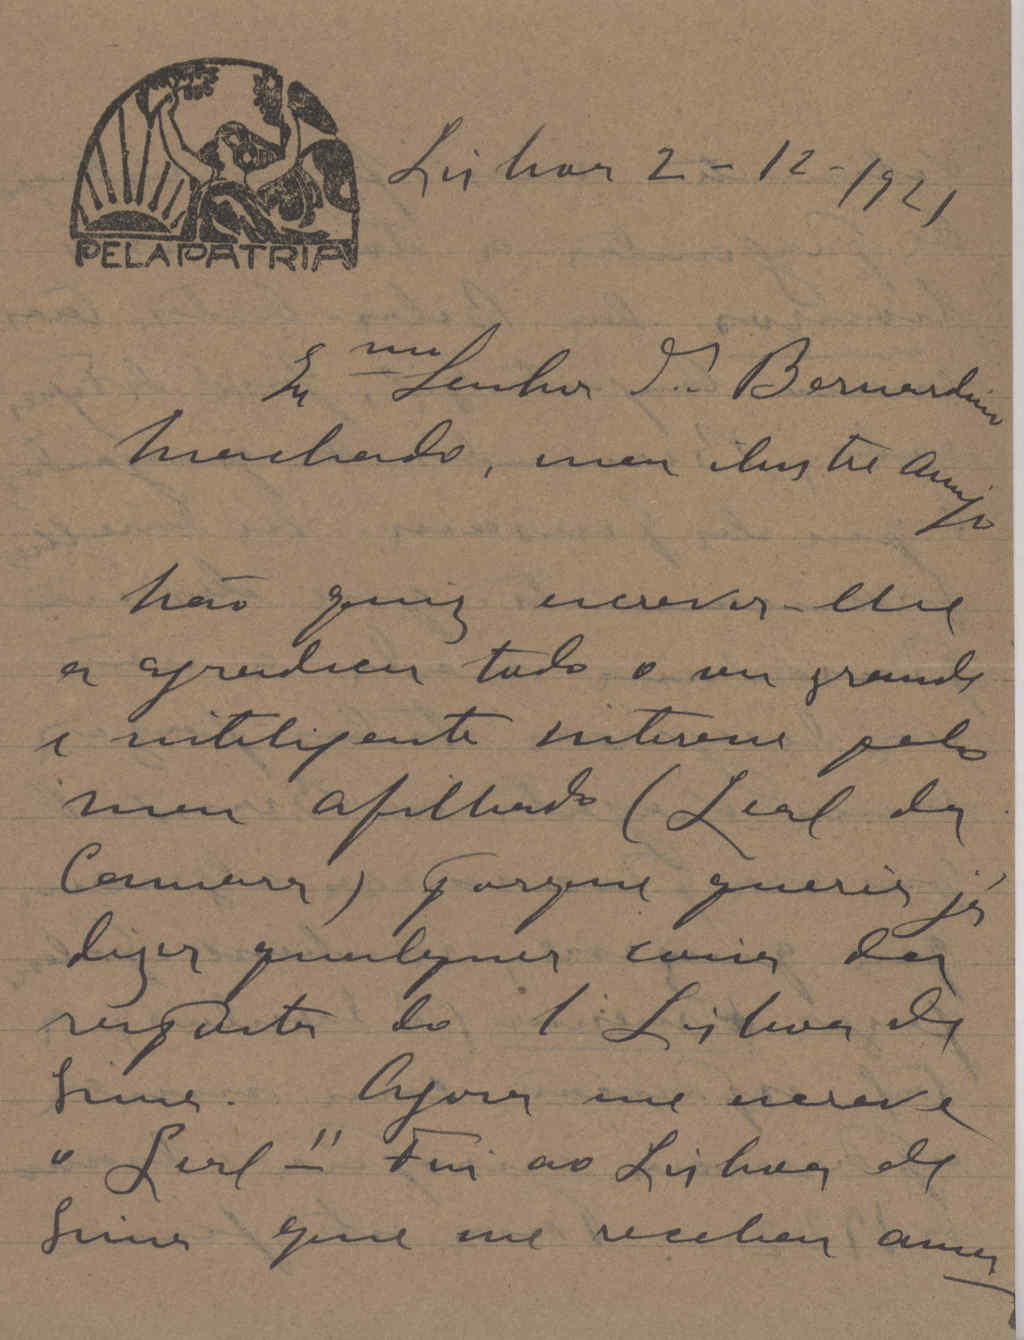 PELA PATRIA
Lisboa 2-12-1921
Exmo Senhor Dr. Bernardino
Machado, meu ilustre amigo
Não quiz escrever-lhe
a agradecer todo o seu grande
e inteligente interesse pelo
meu afilhado (Leal da
Camara) porque queria já
dizer qualquer coisa da
resposta do Lisboa de
Lima. Agora me escreve
o Leal - " Fui ao Lisboa de
Lima que me recebeu ama